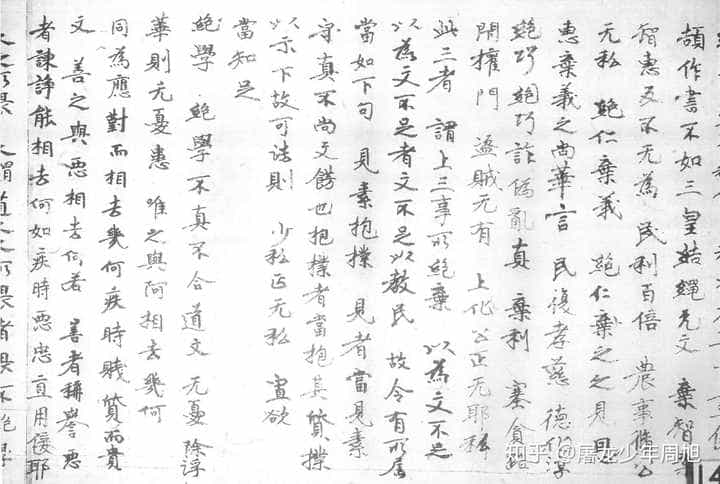 頡作書不如三皇結繩无文 棄智
智惠反不无為 民利百倍 農事脩公
无私 絕仁棄義 絕仁棄之之見恩
惠棄義之尚華言 民復孝慈 德化淳
絕巧 絕巧詐偽亂真 棄利 塞貪路
閇權門 盜賊无有 上化公正无耶私
此三者 謂上三事所絕棄 以為文不足
以為文不足者文不足以教民 故令有所属
當如下句 見素抱撲 見者當見素
守真不尚文餝也抱撲者當抱其質撲
以示下故可法則 少私正无私 寡欲
當知足
絕學 絕學不真不合道文 无憂 除浮
華則无憂患 唯之與阿相去幾何
同為應對而相去幾何疾時賤質而貴
文 善之與惡相去何若 善者稱譽惡
者諫諍能相去何如疾時惡忠直用佞耶
知乎 @屠龙少年周旭
14